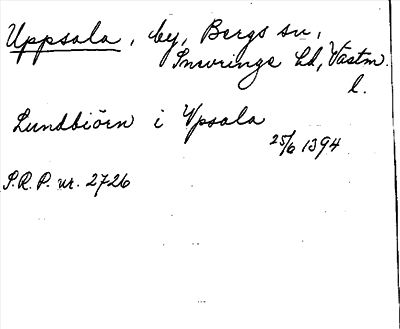 Uppsala, by, Bergs sn,
Snevringe hd, Västm.
l.
Lundbiörn i Vpsala
25/6 1394
S.R.P. nr. 2726